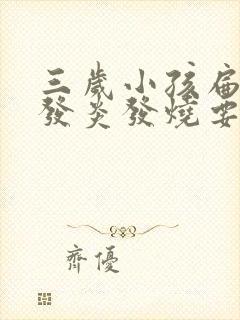 三歲小孩扁
發炎發燒要
齊優